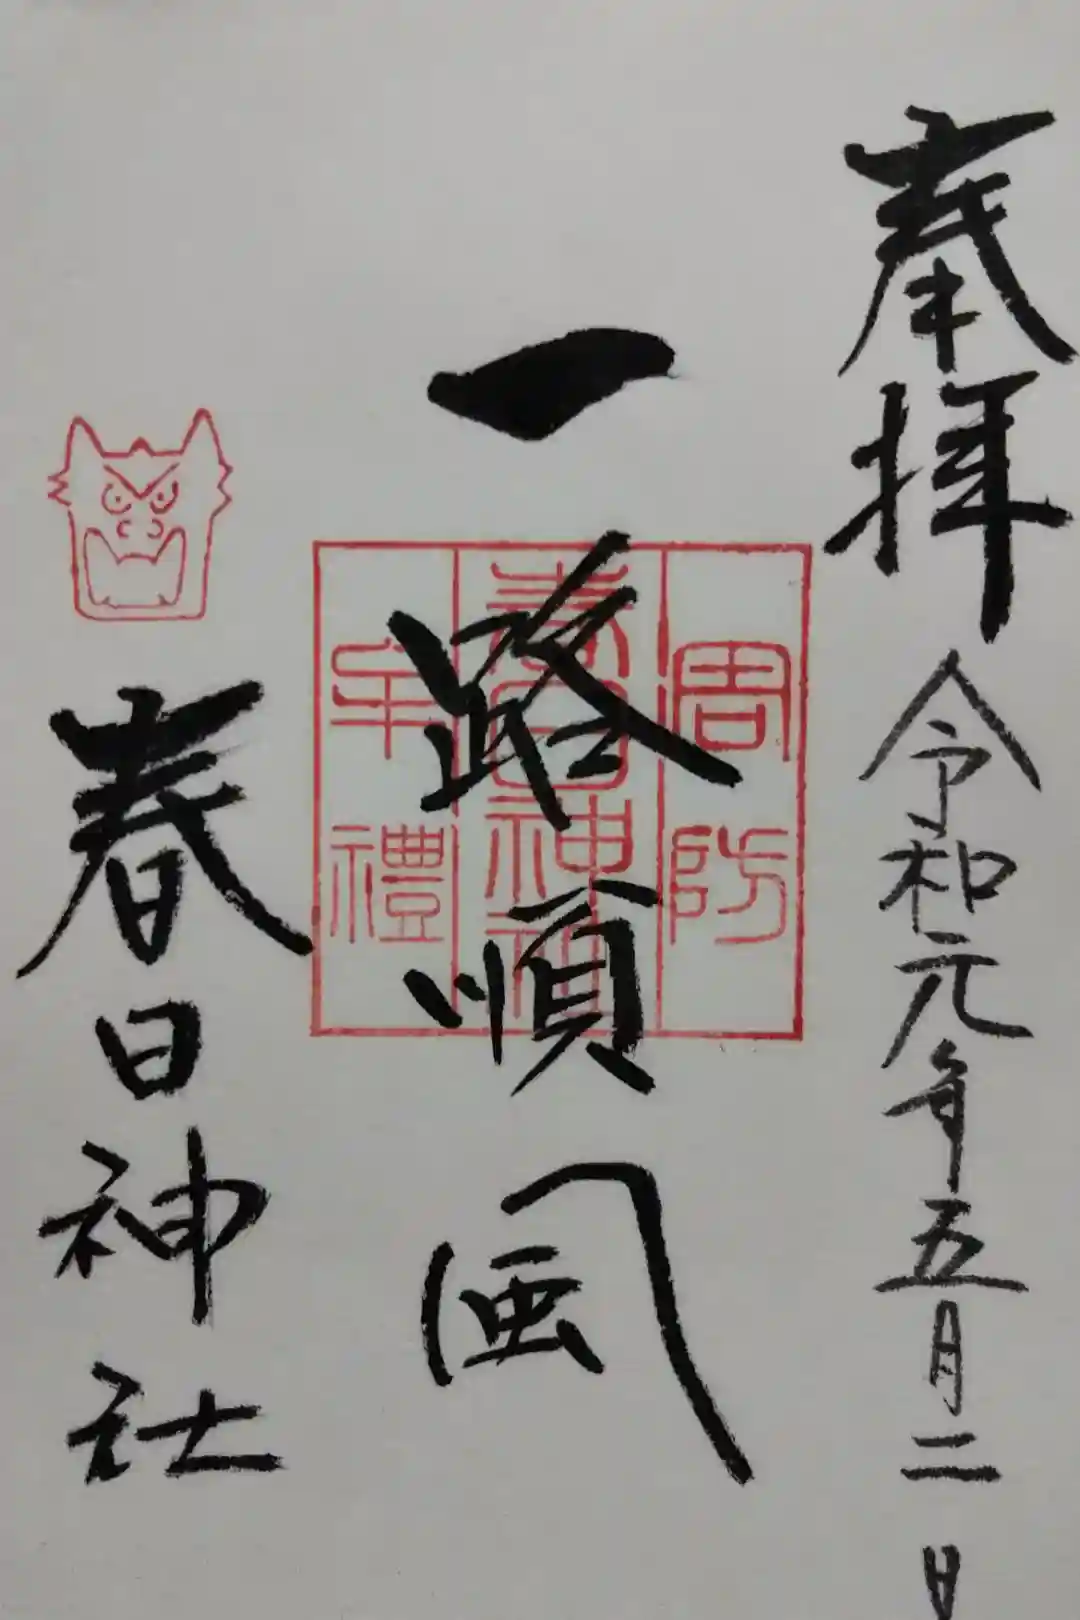 奉拝 令和元年五月二日
一路順風
周防
春日神社
牟禮
春日神社